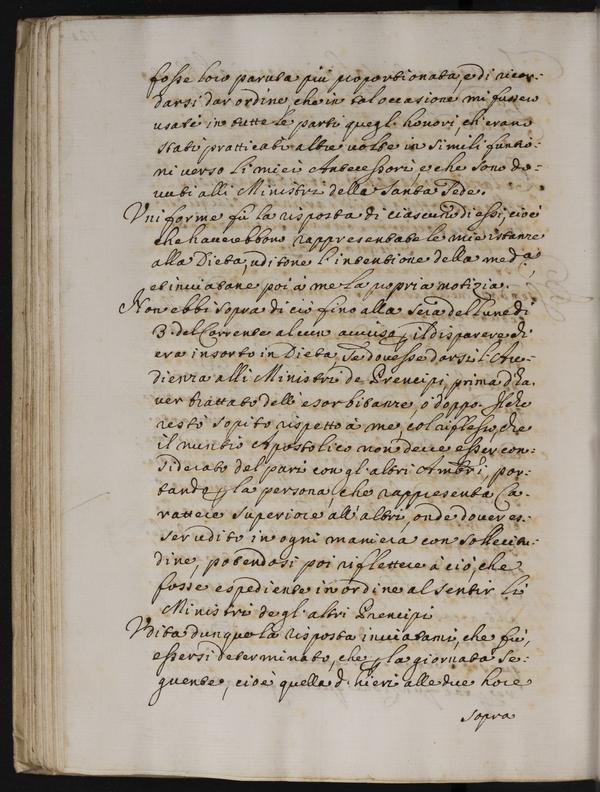 fosse loro paruta più proportionata, e di ricor-
darsi dar ordine, che in tal occasione mi fussero
usati in tutte le parti quegl'honori, ch'erano
stati pratticati altre volte in simili funtio-
ni verso li miei Antecessori e che sono do-
vuti alli Ministri della Santa Sede.
Uniforme fù la risposta di ciascun di essi, cioè
che haverebbono rappresentate le mie istanze
alla Dieta, uditone l'intentione della med.a
et inviatane poi à me la propria notizia.
Non ebbi sopra di ciò fino alla sera del Lunedi
3 del Corrente alcun avviso, il disparere ch'
era insorto in Dieta, se dovesse darsi l'Au-
dienza alli Ministri de Prencipi, prima d'ha-
ver trattato dell'esorbitanze, ò doppo. Il che
restò sopito rispetto à me col riflesso, che
il nuntio Apostolico non deve esser con-
siderato del pari con gl'altri Amb.ri, por-
tando la persona, che rappresenta Ca-
rattere superiore all'altri, onde dover es-
ser udito in ogni maniera con sollecitu-
dine, potendosi poi riflettere à ciò, che
fosse espediente in ordine al sentir li
Ministri degl'altri Prencipi
Udita dunque la risposta inviatami, che fù,
essersi determinato, che la giornata se-
guente, cioè quella d'hieri alle due hore
sopra